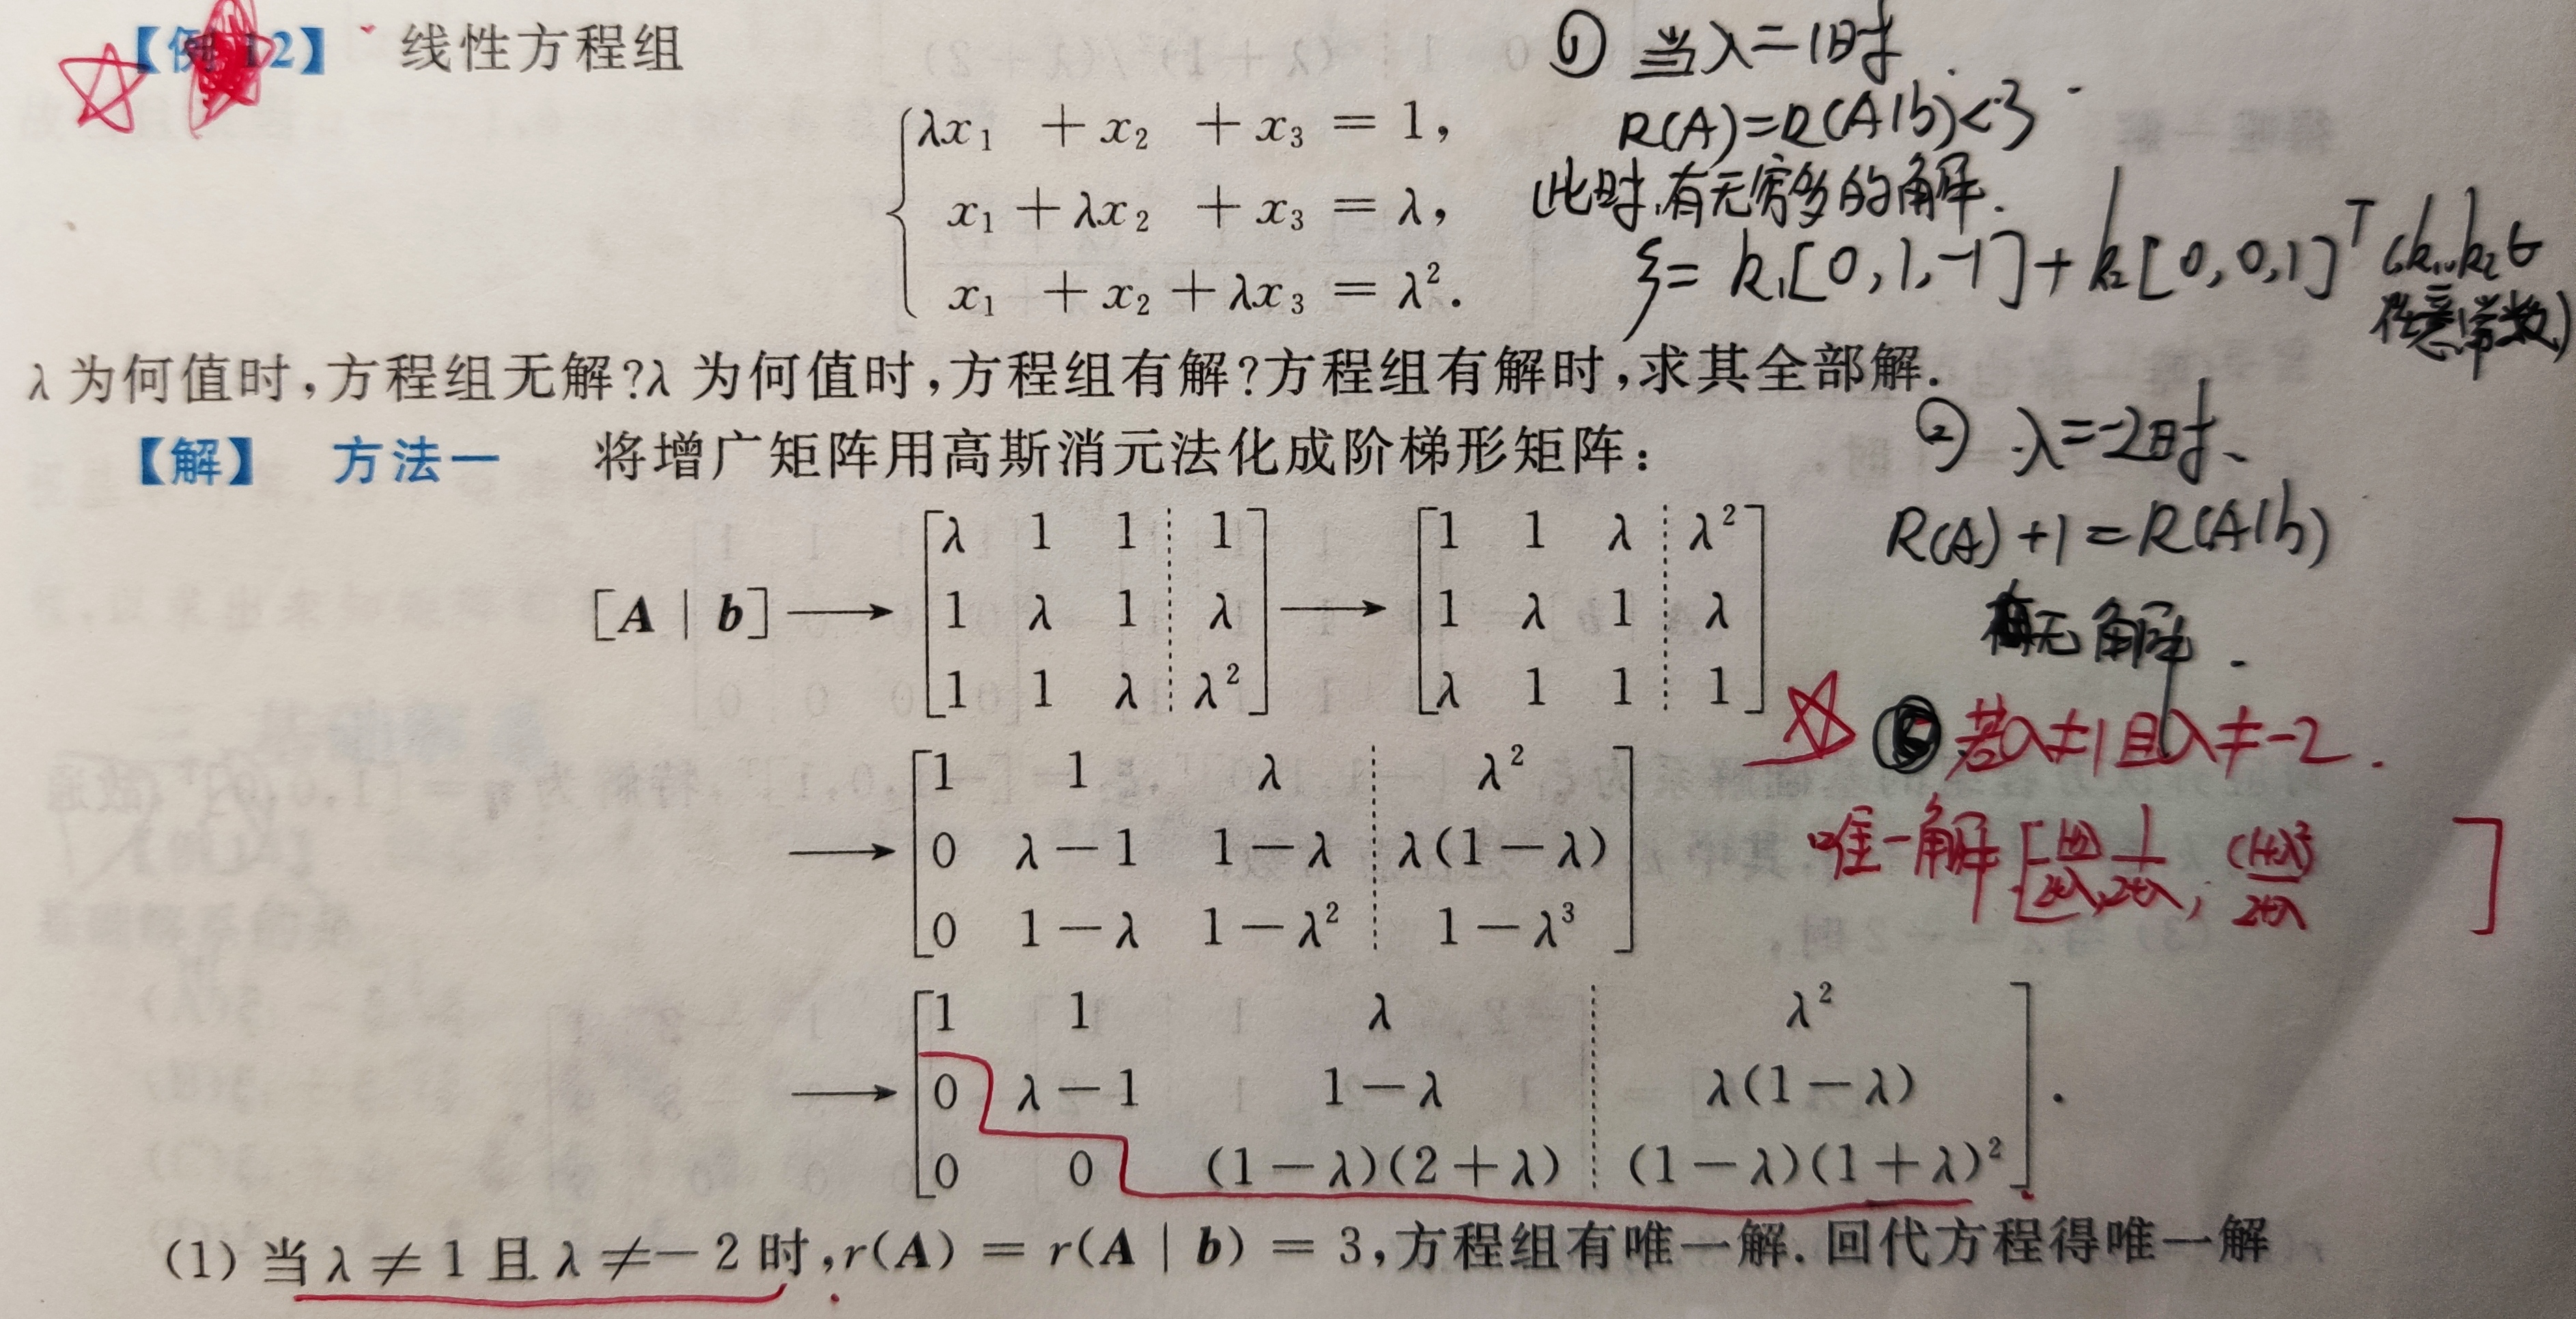 【例 12】 线性方程组
λx₁ + x₂ + x₃ = 1,
x₁ + λx₂ + x₃ = λ,
x₁ + x₂ + λx₃ = λ².
λ 为何值时,方程组无解?λ 为何值时,方程组有解?方程组有解时,求其全部解.
【解】 方法一 将增广矩阵用高斯消元法化成阶梯形矩阵:
[A | b] ⟶ [λ 1 1 ┊ 1] ⟶ [1 1 λ ┊ λ²]
[1 λ 1 ┊ λ] [1 λ 1 ┊ λ]
[1 1 λ ┊ λ²] [λ 1 1 ┊ 1]
⟶ [1 1 λ ┊ λ²]
[0 λ－1 1－λ ┊ λ(1－λ)]
[0 1－λ 1－λ² ┊ 1－λ³]
⟶ [1 1 λ ┊ λ²]
[0 λ－1 1－λ ┊ λ(1－λ)]
[0 0 (1－λ)(2＋λ) ┊ (1－λ)(1＋λ)²].
(1) 当 λ ≠ 1 且 λ ≠－2 时,r(A) = r(A | b) = 3,方程组有唯一解. 回代方程得唯一解
① 当λ=1时
R(A)=R(A|b)<3
此时,有无穷多的解.
ξ= k₁[0,1,-1]+k₂[0,0,1]ᵀ (k₁,k₂
任意常数)
② λ=-2时、
R(A)+1=R(A|b)
无解.
若λ≠1且λ≠-2.
唯一解[ 1/2+λ, (1+λ)²/2+λ ]